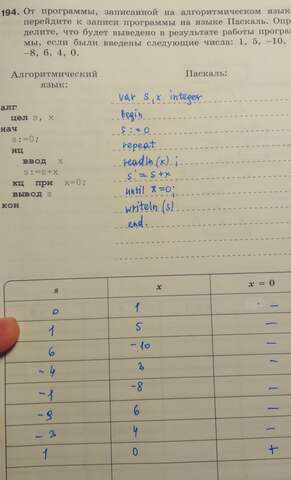 194. От программы, записанной на алгоритмическом язык
перейдите к записи программы на языке Паскаль. Опр
делите, что будет выведено в результате работы програ
мы, если были введены следующие числа: 1, 5, -10,
-8, 6, 4, 0.
Алгоритмический Паскаль:
язык:
var s, x integer
алг begin
цел s, x s := 0
нач repeat
s:=0; readln(x);
нц s := s+x
ввод x until x=0;
s:=s+x writeln(s)
кц при x=0; end.
вывод s
кон
s x x = 0
0 1 -
1 5 -
6 -10 -
-4 3 -
-1 -8 -
-9 6 -
-3 4 -
1 0 +